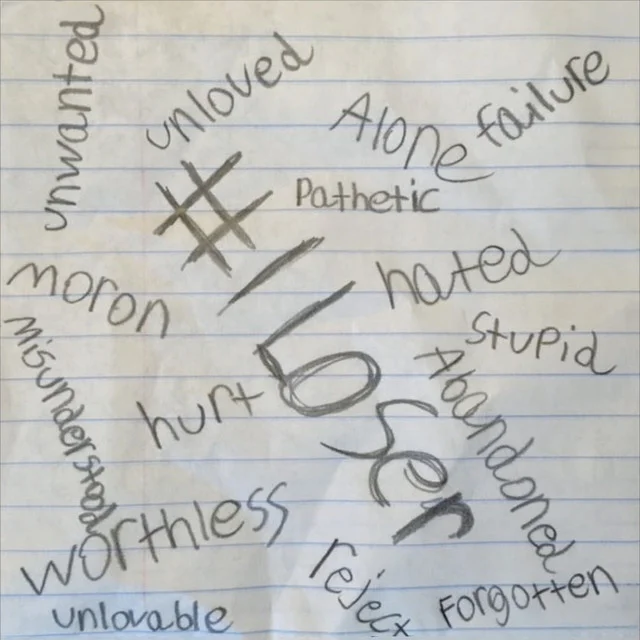 unwanted
unloved
Alone
failure
Pathetic
#loser
hated
moron
Stupid
misunderstood
hurt
Abandoned
worthless
reject
Forgotten
unlovable